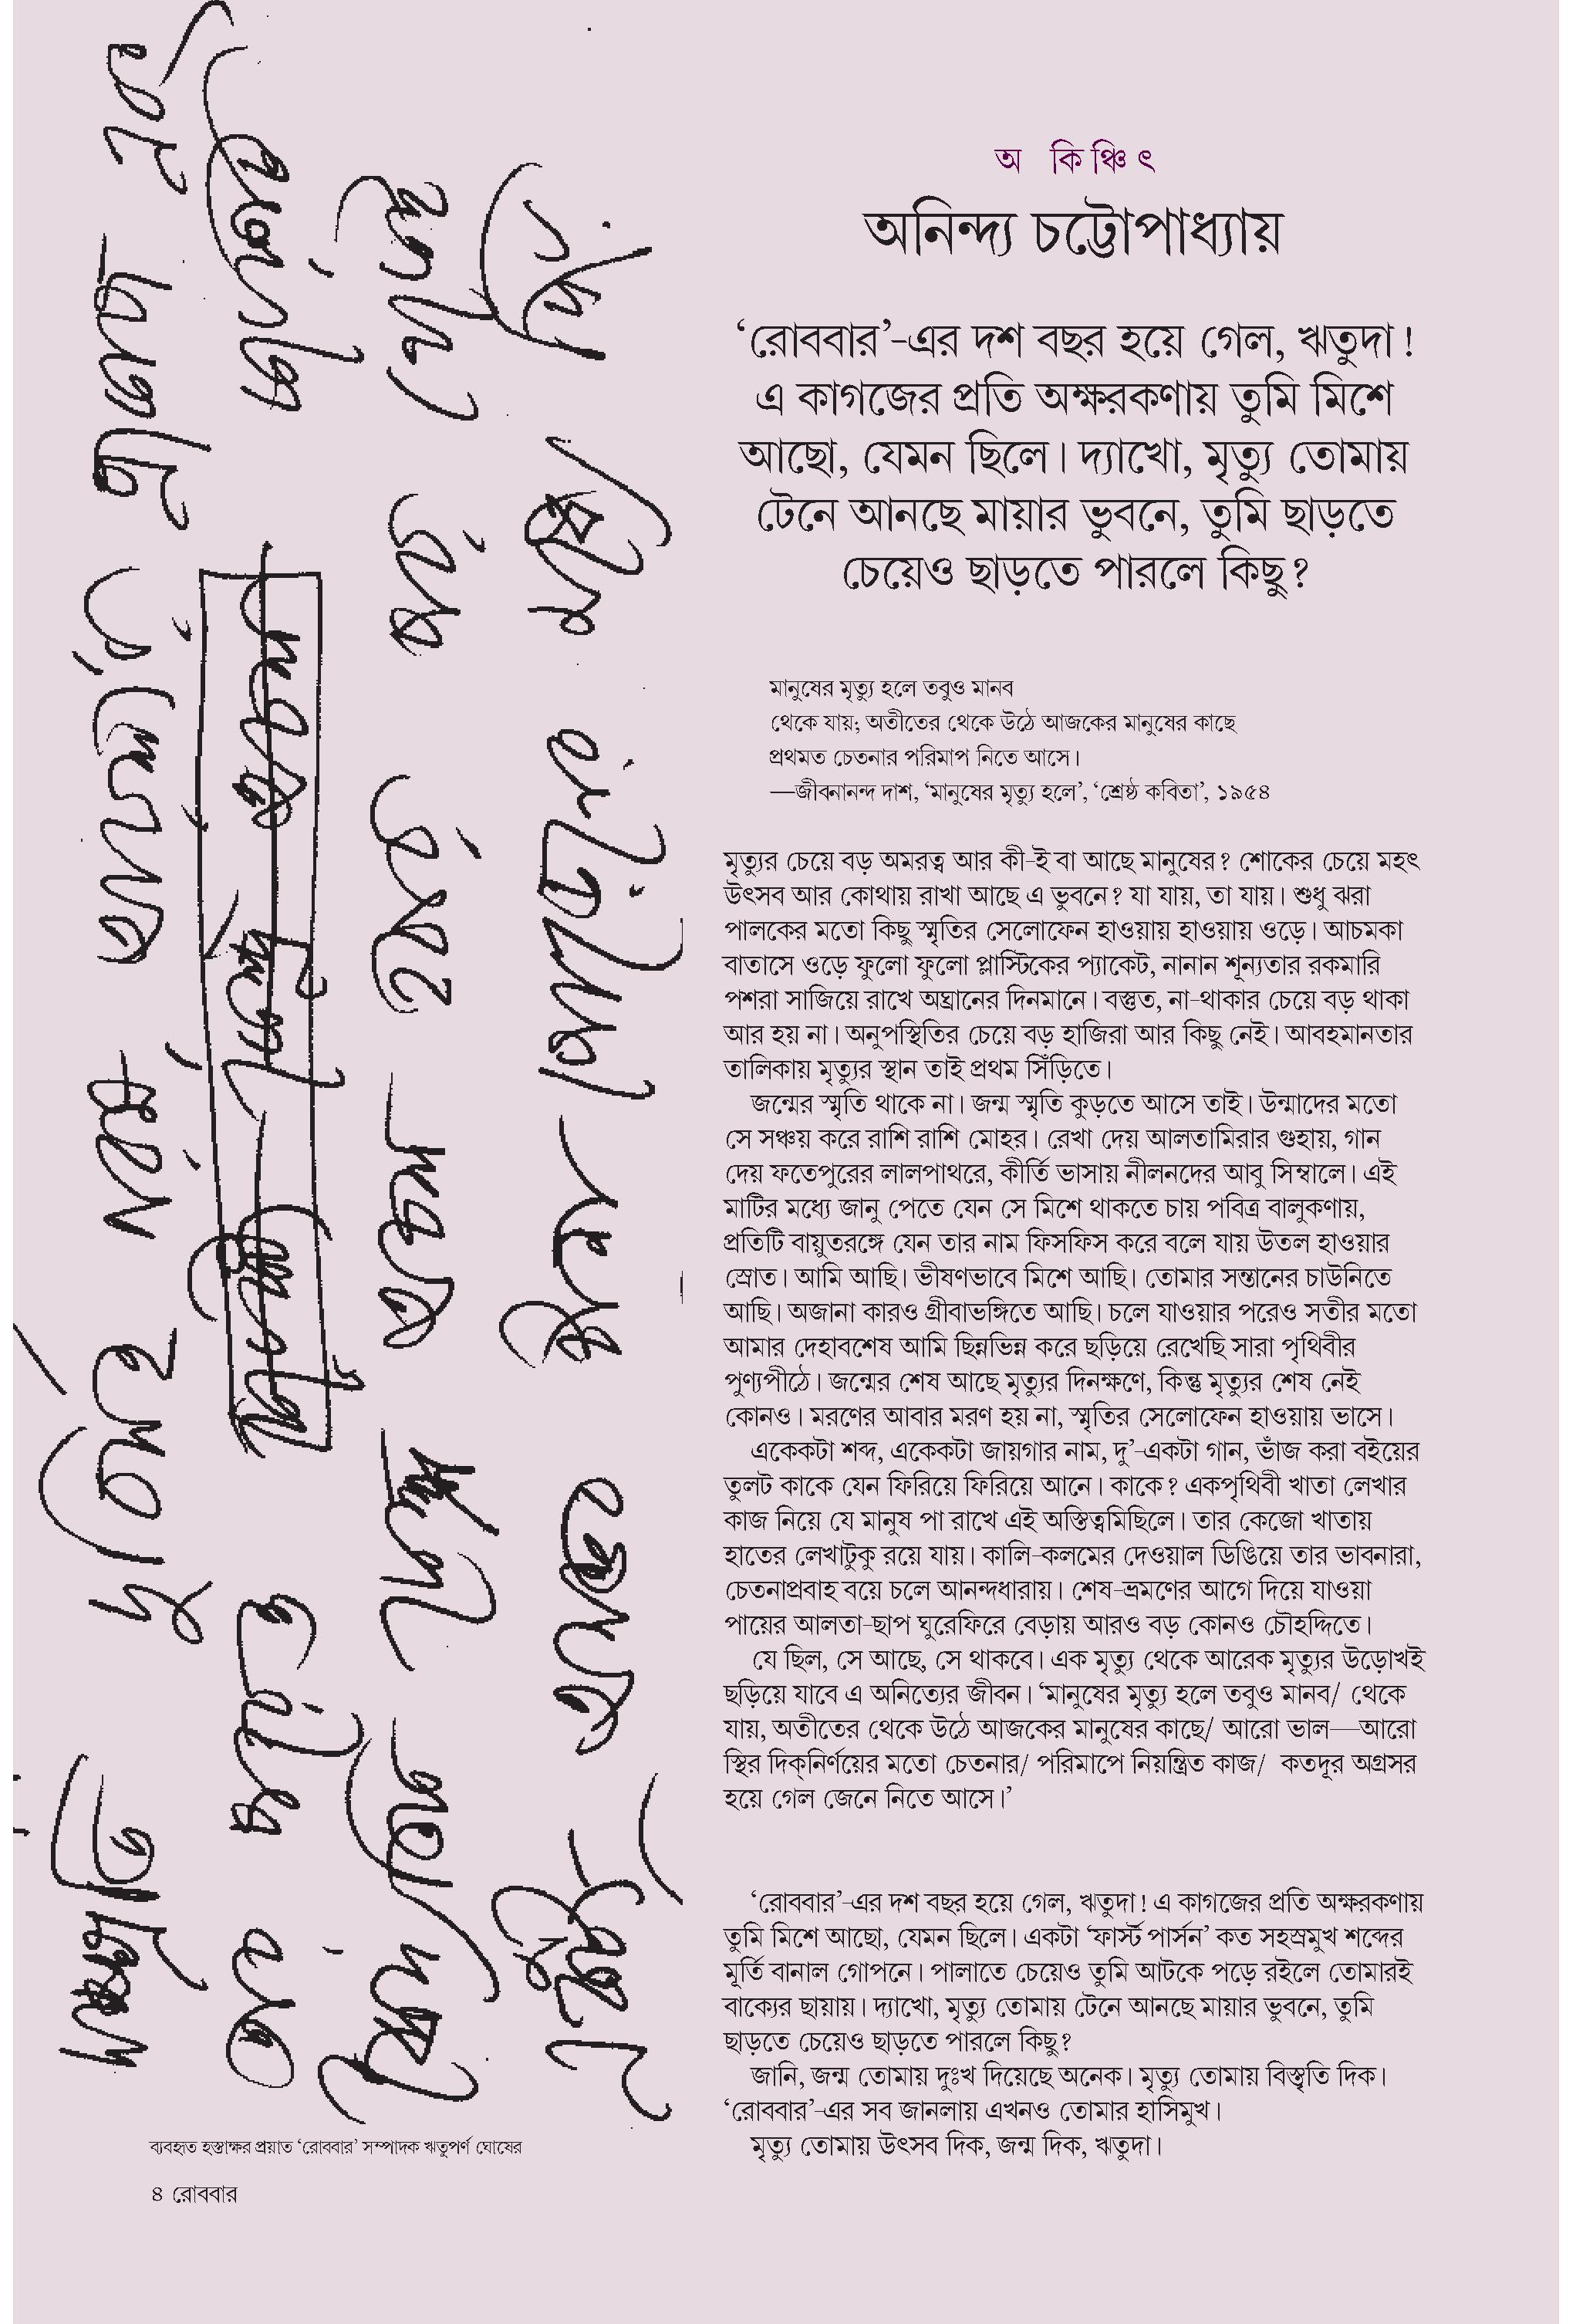 অ কিঞ্চিৎ
অনিন্দ্য চট্টোপাধ্যায়
‘রোববার’-এর দশ বছর হয়ে গেল, ঋতুদা!
এ কাগজের প্রতি অক্ষরকণায় তুমি মিশে
আছো, যেমন ছিলে। দ্যাখো, মৃত্যু তোমায়
টেনে আনছে মায়ার ভুবনে, তুমি ছাড়তে
চেয়েও ছাড়তে পারলে কিছু?
মানুষের মৃত্যু হলে তবুও মানব
থেকে যায়; অতীতের থেকে উঠে আজকের মানুষের কাছে
প্রথমত চেতনার পরিমাপ নিতে আসে।
—জীবনানন্দ দাশ, ‘মানুষের মৃত্যু হলে’, ‘শ্রেষ্ঠ কবিতা’, ১৯৫৪
মৃত্যুর চেয়ে বড় অমরত্ব আর কী-ই বা আছে মানুষের? শোকের চেয়ে মহৎ
উৎসব আর কোথায় রাখা আছে এ ভুবনে? যা যায়, তা যায়। শুধু ঝরা
পালকের মতো কিছু স্মৃতির সেলোফেন হাওয়ায় হাওয়ায় ওড়ে। আচমকা
বাতাসে ওড়ে ফুলো ফুলো প্লাস্টিকের প্যাকেট, নানান শূন্যতার রকমারি
পশরা সাজিয়ে রাখে অঘ্রানের দিনমানে। বস্তুত, না-থাকার চেয়ে বড় থাকা
আর হয় না। অনুপস্থিতির চেয়ে বড় হাজিরা আর কিছু নেই। আবহমানতার
তালিকায় মৃত্যুর স্থান তাই প্রথম সিঁড়িতে।
জন্মের স্মৃতি থাকে না। জন্ম স্মৃতি কুড়তে আসে তাই। উন্মাদের মতো
সে সঞ্চয় করে রাশি রাশি মোহর। রেখা দেয় আলতামিরার গুহায়, গান
দেয় ফতেপুরের লালপাথরে, কীর্তি ভাসায় নীলনদের আবু সিম্বালে। এই
মাটির মধ্যে জানু পেতে যেন সে মিশে থাকতে চায় পবিত্র বালুকণায়,
প্রতিটি বায়ুতরঙ্গে যেন তার নাম ফিসফিস করে বলে যায় উতল হাওয়ার
স্রোত। আমি আছি। ভীষণভাবে মিশে আছি। তোমার সন্তানের চাউনিতে
আছি। অজানা কারও গ্রীবাভঙ্গিতে আছি। চলে যাওয়ার পরেও সতীর মতো
আমার দেহাবশেষ আমি ছিন্নভিন্ন করে ছড়িয়ে রেখেছি সারা পৃথিবীর
পুণ্যপীঠে। জন্মের শেষ আছে মৃত্যুর দিনক্ষণে, কিন্তু মৃত্যুর শেষ নেই
কোনও। মরণের আবার মরণ হয় না, স্মৃতির সেলোফেন হাওয়ায় ভাসে।
একেকটা শব্দ, একেকটা জায়গার নাম, দু’-একটা গান, ভাঁজ করা বইয়ের
তুলট কাকে যেন ফিরিয়ে ফিরিয়ে আনে। কাকে? একপৃথিবী খাতা লেখার
কাজ নিয়ে যে মানুষ পা রাখে এই অস্তিত্বমিছিলে। তার কেজো খাতায়
হাতের লেখাটুকু রয়ে যায়। কালি-কলমের দেওয়াল ডিঙিয়ে তার ভাবনারা,
চেতনাপ্রবাহ বয়ে চলে আনন্দধারায়। শেষ-ভ্রমণের আগে দিয়ে যাওয়া
পায়ের আলতা-ছাপ ঘুরেফিরে বেড়ায় আরও বড় কোনও চৌহদ্দিতে।
যে ছিল, সে আছে, সে থাকবে। এক মৃত্যু থেকে আরেক মৃত্যুর উড়োখই
ছড়িয়ে যাবে এ অনিত্যের জীবন। ‘মানুষের মৃত্যু হলে তবুও মানব/ থেকে
যায়, অতীতের থেকে উঠে আজকের মানুষের কাছে/ আরো ভাল—আরো
স্থির দিক্‌নির্ণয়ের মতো চেতনার/ পরিমাপে নিয়ন্ত্রিত কাজ/ কতদূর অগ্রসর
হয়ে গেল জেনে নিতে আসে।’
‘রোববার’-এর দশ বছর হয়ে গেল, ঋতুদা! এ কাগজের প্রতি অক্ষরকণায়
তুমি মিশে আছো, যেমন ছিলে। একটা ‘ফার্স্ট পার্সন’ কত সহস্রমুখ শব্দের
মূর্তি বানাল গোপনে। পালাতে চেয়েও তুমি আটকে পড়ে রইলে তোমারই
বাক্যের ছায়ায়। দ্যাখো, মৃত্যু তোমায় টেনে আনছে মায়ার ভুবনে, তুমি
ছাড়তে চেয়েও ছাড়তে পারলে কিছু?
জানি, জন্ম তোমায় দুঃখ দিয়েছে অনেক। মৃত্যু তোমায় বিস্তৃতি দিক।
‘রোববার’-এর সব জানলায় এখনও তোমার হাসিমুখ।
মৃত্যু তোমায় উৎসব দিক, জন্ম দিক, ঋতুদা।
ব্যবহৃত হস্তাক্ষর প্রয়াত ‘রোববার’ সম্পাদক ঋতুপর্ণ ঘোষের
৪ রোববার